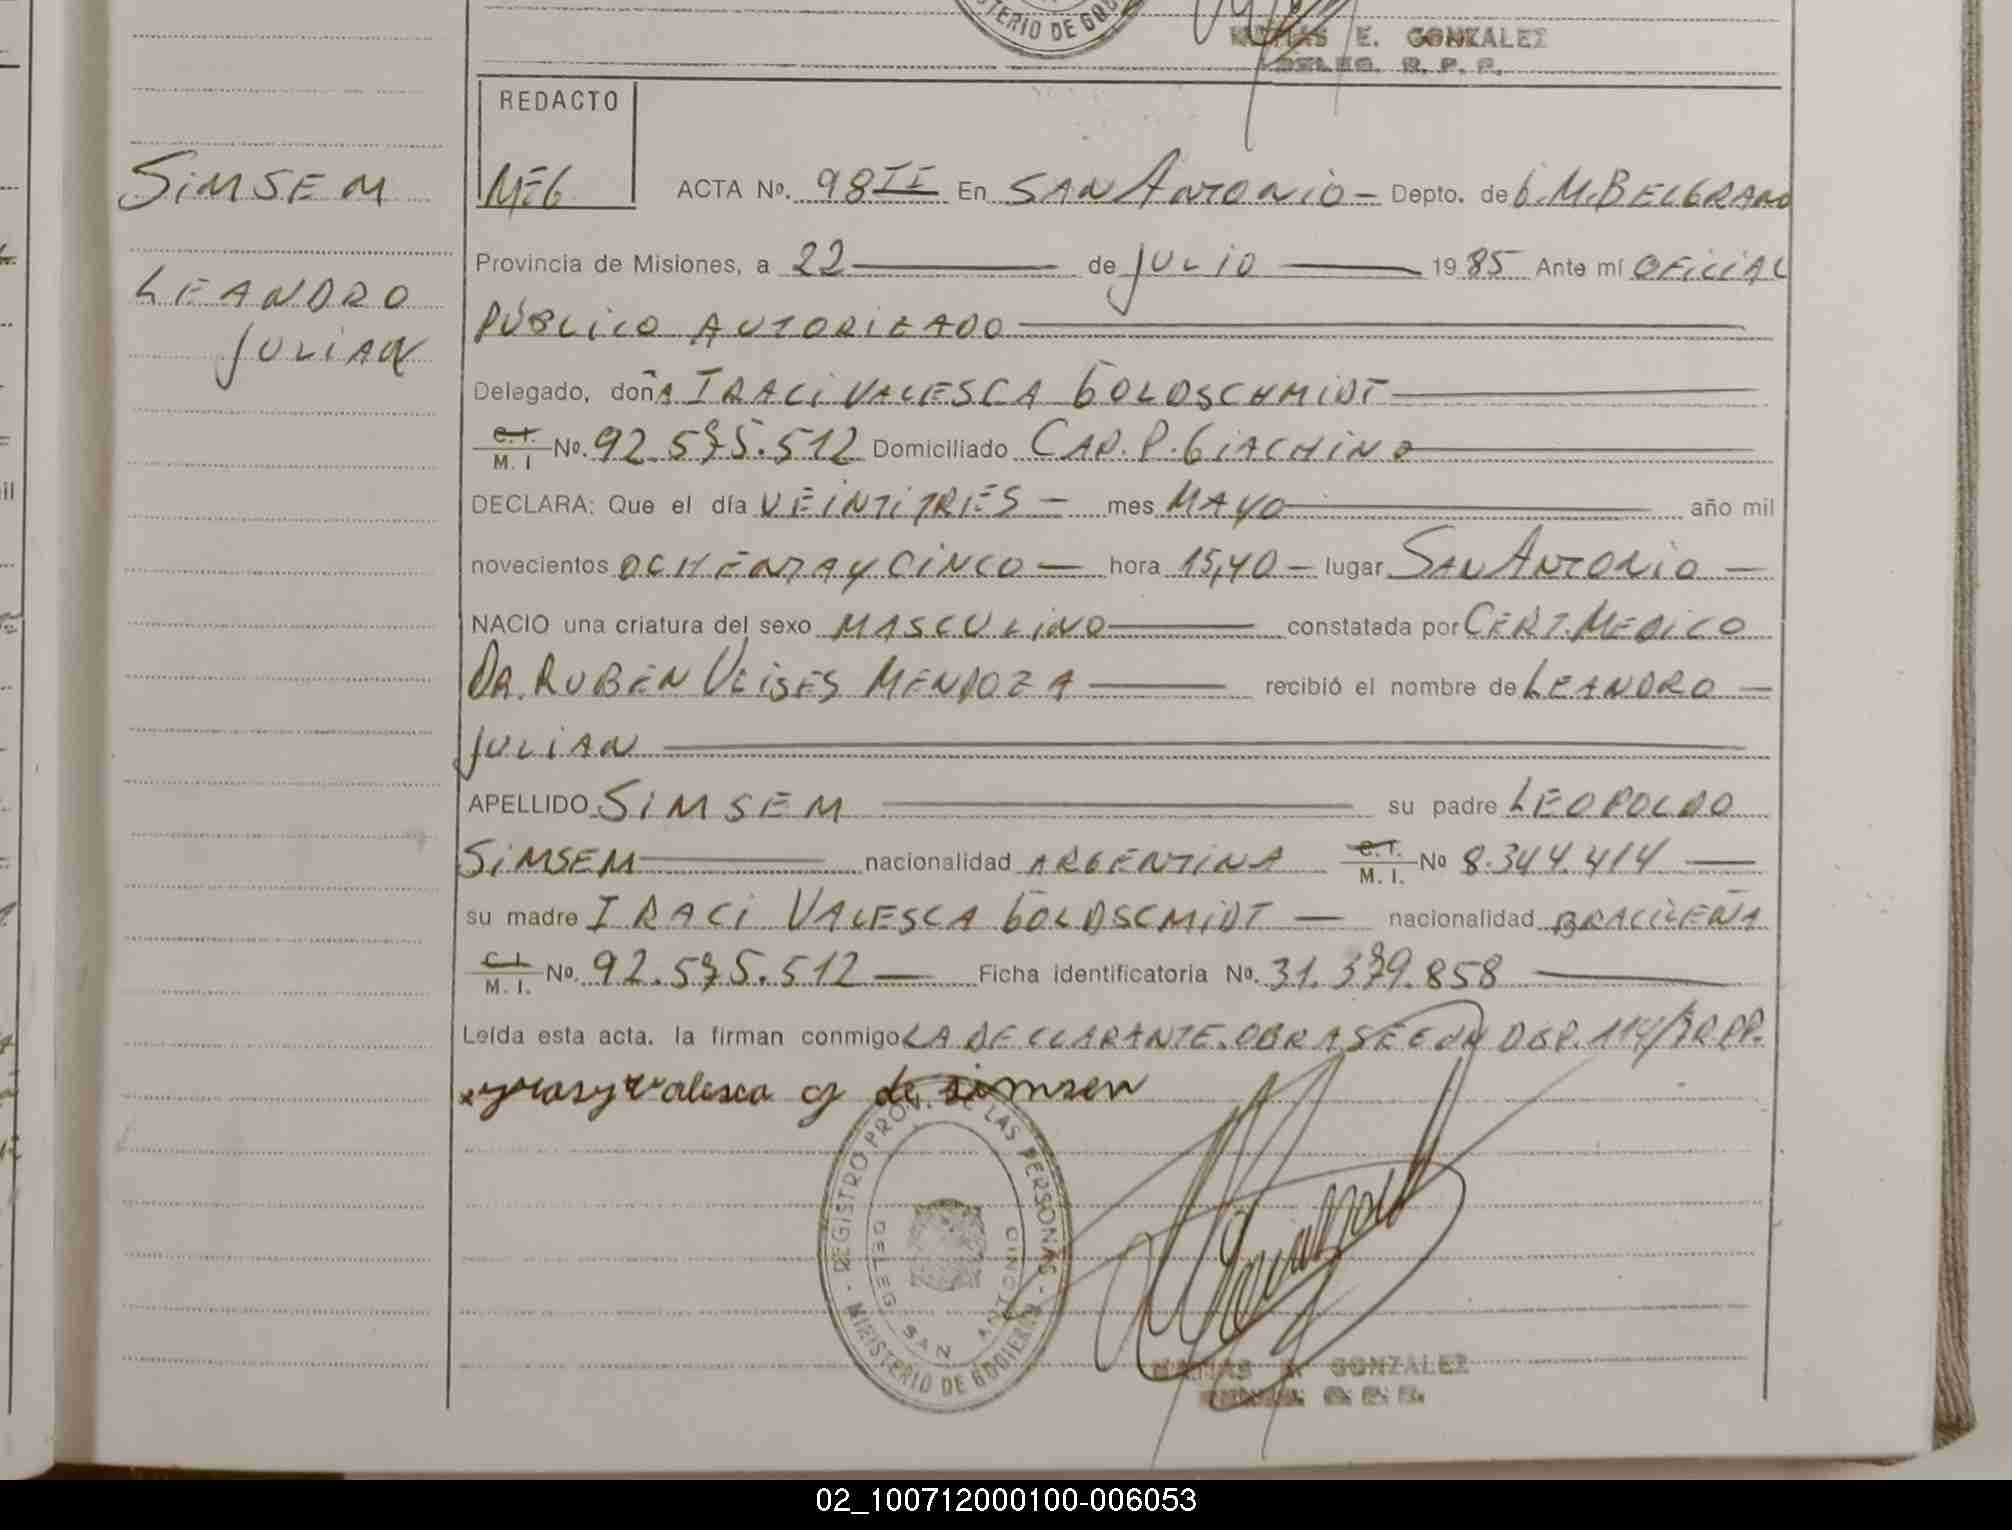 MINISTERIO DE GOB
MATIAS E. GONZALEZ
DELEG. R. P. P.
REDACTO
MEG
ACTA No. 98 II En SAN ANTONIO — Depto. de G.M.BELGRANO
Provincia de Misiones, a 22 de JULIO 1985 Ante mí OFICIAL
PÚBLICO AUTORIZADO
Delegado, doñA IRACI VALESCA GOLDSCHMIDT
C.I. / M. I No. 92.575.512 Domiciliado CAP. P. GIACHINO
DECLARA: Que el día VEINTITRÉS — mes MAYO año mil
novecientos OCHENTA Y CINCO — hora 15,40 — lugar SAN ANTONIO —
NACIO una criatura del sexo MASCULINO constatada por CERT. MEDICO
DR. RUBEN ULISES MENDOZA recibió el nombre de LEANDRO —
JULIAN
APELLIDO SIMSEM su padre LEOPOLDO
SIMSEM nacionalidad ARGENTINA C.I. / M. I. No 8.344.414 —
su madre IRACI VALESCA GOLDSCMIDT — nacionalidad BRACILEÑA
C.I. / M. I. No. 92.575.512 — Ficha identificatoria No. 31.379.858
Leída esta acta. la firman conmigo LA DECLARANTE. OBRA SEGUN DSP. 114/ RPP.
valesca g de simsen
REGISTRO PROV. DE LAS PERSONAS
DELEG. SAN ANTONIO
MINISTERIO DE GOBIERNO
MATIAS E. GONZALEZ
DELEG. R. P. P.
SIMSEM
LEANDRO
JULIAN
02_100712000100-006053